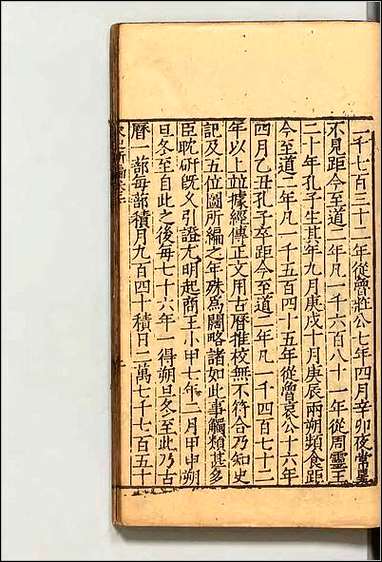 一千七百三十二年從魯莊公七年四月辛卯夜常星
不見距今至道二年凡一千六百八十一年從周靈王
二十年孔子生其年九月庚戌十月庚辰兩朔頻食距
今至道二年凡一千五百四十五年從魯哀公十六年
四月乙丑孔子卒距今至道二年凡一千四百七十二
年以上並據經傳正文用古曆推校無不符合乃知史
記及五位圖所編之年殊為闊略諸如此事觸類甚多
臣耽研既久引證尤明起商王小甲七年二月甲申朔
旦冬至自此之後每七十六年一得朔旦冬至此乃古
曆一蔀每蔀積月九百四十積日二萬七千七百五十